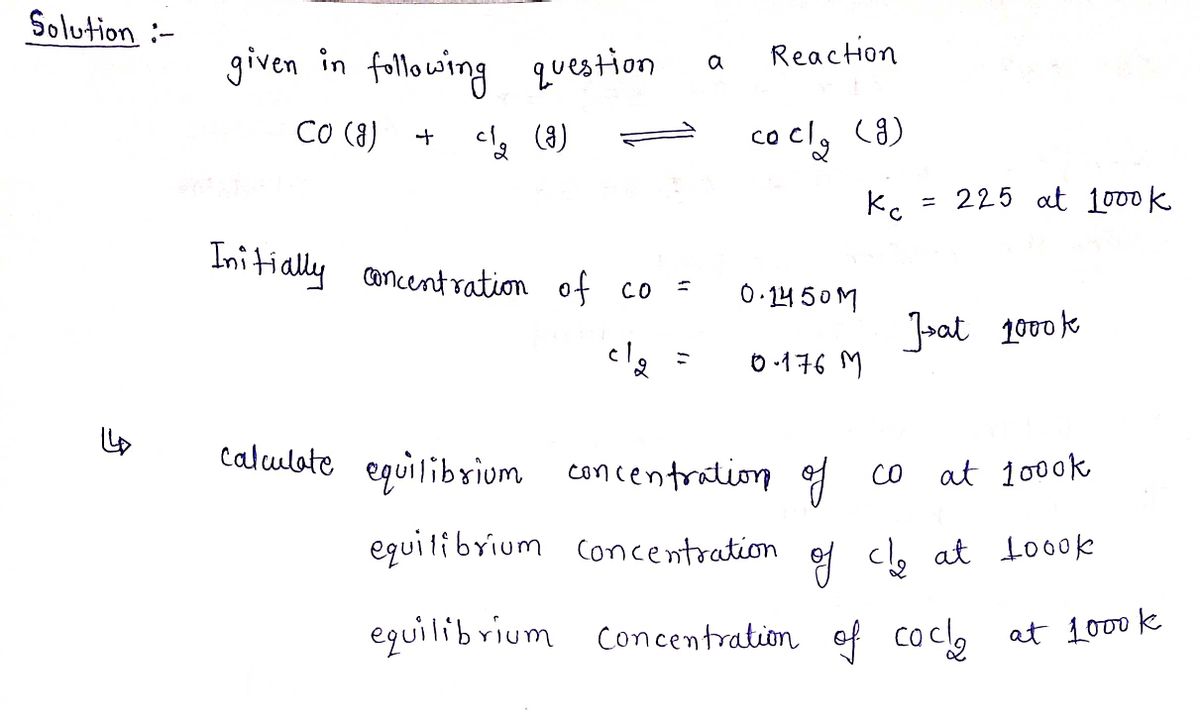 Solution :-
given in following question a Reaction
CO (g) + cl₂ (g) ⇌ cocl₂ (g)
Kc = 225 at 1000k
Initially concentration of co = 0.1450M
cl₂ = 0.176 M ]→at 1000k
↳ calculate equilibrium concentration of co at 1000k
equilibrium concentration of cl₂ at 1000k
equilibrium concentration of cocl₂ at 1000k